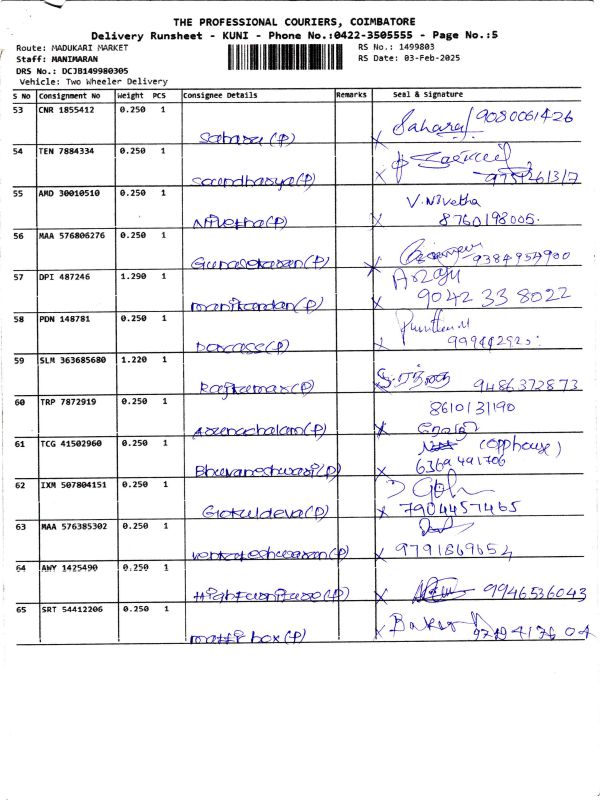 THE PROFESSIONAL COURIERS, COIMBATORE
Delivery Runsheet - KUNI - Phone No.:0422-3505555 - Page No.:5
Route: MADUKARI MARKET
RS No.: 1499803
Staff: MANIMARAN
RS Date: 03-Feb-2025
DRS No.: DCJB149980305
Vehicle: Two Wheeler Delivery
S No Consignment No Weight PCS Consignee Details Remarks Seal & Signature
53 CNR 1855412 0.250 1
Sahara (P) x Saharaf 9080061426
54 TEN 7884334 0.250 1
Soundharya (P) x
55 AMD 30010510 0.250 1 V.Nivetha
Nivetha (P) x 8760198005.
56 MAA 576806276 0.250 1
Gunasekaran (P) x 9384954900
57 DPI 487246 1.290 1
manikandan (P) x 9042 33 8022
58 PDN 148781 0.250 1
(P) x
59 SLM 363685680 1.220 1
Rajkumar (P) x 9486372873
60 TRP 7872919 0.250 1 8610131190
Arunachalam (P) x
61 TCG 41502960 0.250 1 (opp house)
Bhuvaneshwari (P) x 6369491706
62 IXM 507804151 0.250 1
Gokuldeva (P) x 7904457465
63 MAA 576385302 0.250 1
venkateshwaran (P) x 9791869654
64 AWY 1425490 0.250 1
High Furniture (P) x 9946536043
65 SRT 54412206 0.250 1
box (P) x